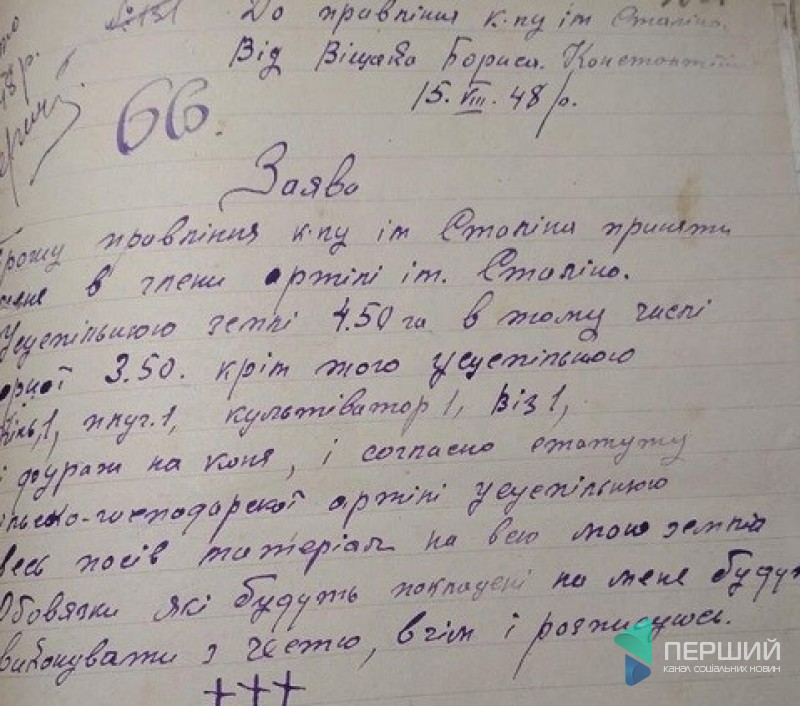 № 131
До правління к-пу ім Сталіна.
Від Віщака Бориса. Констонтін
15. VIII. 48 р.
48 р.
66.
Заява
Прошу правління к-пу ім Сталіна приняти
мене в члени артілі ім. Сталіна.
Усуспільнюю землі 4.50 га в тому числі
орної 3.50. кріт того усуспільнюю
Кінь,1, плуг.1, культіватор 1, Віз 1,
і фураж на коня, і согласно статуту
ільско-господарскої артілі усуспільнюю
весь посів матеріал на всю мою землю
Обовязки які будуть покладені на мене буду
виконувати з честю, в чім і розписуюсь.
+++
ПЕРШИЙ
КАНАЛ СОЦІАЛЬНИХ НОВИН